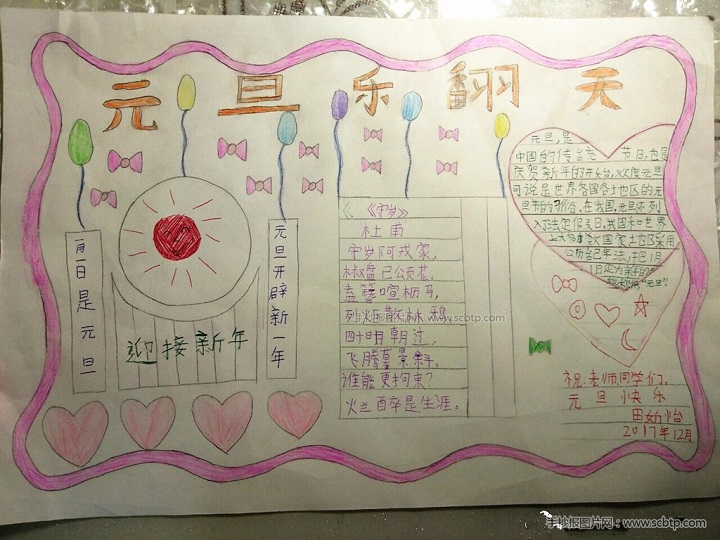 元旦乐翻天
一月一日是元旦
迎接新年
元旦开辟新一年
《守岁》
杜甫
守岁阿戎家,
椒盘已公花。
盍簪喧枥马,
列炬散林鸦
四十明朝过,
飞腾暮景斜。
谁能更拘束?
烂醉是生涯。
元旦,是
中国的传 节日,也是
庆贺新年的开始,欢度元旦
可说是世界各国各士也区的元
旦 的习俗,在我国,元旦还列
入法定作 日,我国和世界
上大多 国家 地区采用
公历 年法,于把1月
1日定为新年的
"元旦"
祝:老师同学们,
元旦快乐
田妡怡
2017年12月
手抄报图片网:www.scbtp.com
手抄报图片网:www.scbtp.com